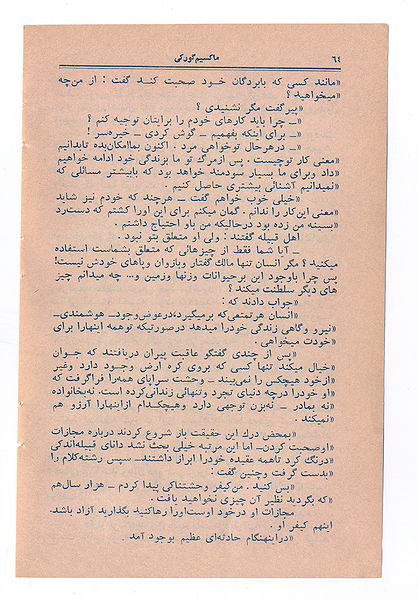 ماکسیم گورکی
٦٤
«مانند کسی که بابردگان خود صحبت کند گفت : از من چه
«میخواهید ؟
«پیر گفت مگر نشنیدی ؟
«ــ چرا باید کارهای خودم را برایتان توجیه کنم ؟
«ــ برای اینکه بفهمیم ــ گوش کردی ــ خیره‌سر !
«ــ درهرحال توخواهی مرد . اکنون بماامکان‌بده تابدانیم
«معنی کار توچیست . پس ازمرگ تو ما بزندگی خود ادامه خواهیم
«داد وبرای ما بسیار سودمند خواهد بود که بابیشتر مسائلی که
«نمیدانیم آشنائی بیشتری حاصل کنیم .
«خیلی خوب خواهم گفت ــ هرچند که خودم نیز شاید
«معنی این‌کار را ندانم . گمان میکنم برای این اورا کشتم که دست‌رد
«بسینه من زده بود درحالیکه من باو احتیاج داشتم .
اهل قبیله گفتند : ولی او متعلق بتو نبود .
ــ آیا شما فقط از چیزهائی که متعلق بشماست استفاده
میکنید ؟ مگر انسان تنها مالك گفتار وبازوان وپاهای خودش نیست!
پس چرا باوجود این برحیوانات وزنها وزمین و... چه میدانم چیز
های دیگر سلطنت میکند ؟
«جواب دادند که :
«انسان هرتمتعی که برمیگیرد،درعوض‌وجودــ هوشمندی‌ــ
«نیرو وگاهی زندگی خودرا میدهد درصورتیکه توهمه اینهارا برای
«خودت میخواهی .
«پس از چندی گفتگو عاقبت پیران دریافتند که جوان
«خیال میکند تنها کسی که بروی کره ارض وجود دارد وغیر
«ازخود هیچکس را نمی‌بیند ــ وحشت سراپای همه‌را فراگرفت که
«او خودرا درچه دنیای تجرد وتنهائی زندانی‌کرده است. نه‌بخانواده
«نه بمادر ــ نه‌بزن توجهی دارد وهیچکدام ازاینهارا آرزو هم
«نمیکند .
«بمحض درك این حقیقت باز شروع کردند درباره مجازات
«اوصحبت کردن‌ــ اما این مرتبه خیلی بحث نشد دانای قبیله‌اندکی
«درنگ کرد تاهمه عقیده خودرا ابراز داشتندــ سپس رشته‌کلام را
«بدست گرفت وچنین گفت :
«بس کنید . من‌کیفر وحشتناکی پیدا کردم ــ هزار سال‌هم
«که بگردید نظیر آن چیزی نخواهید یافت .
مجازات او درخود اوست‌اورا رهاکنید بگذارید آزاد باشد.
اینهم کیفر او .
«دراینهنگام حادثه‌ای عظیم بوجود آمد .